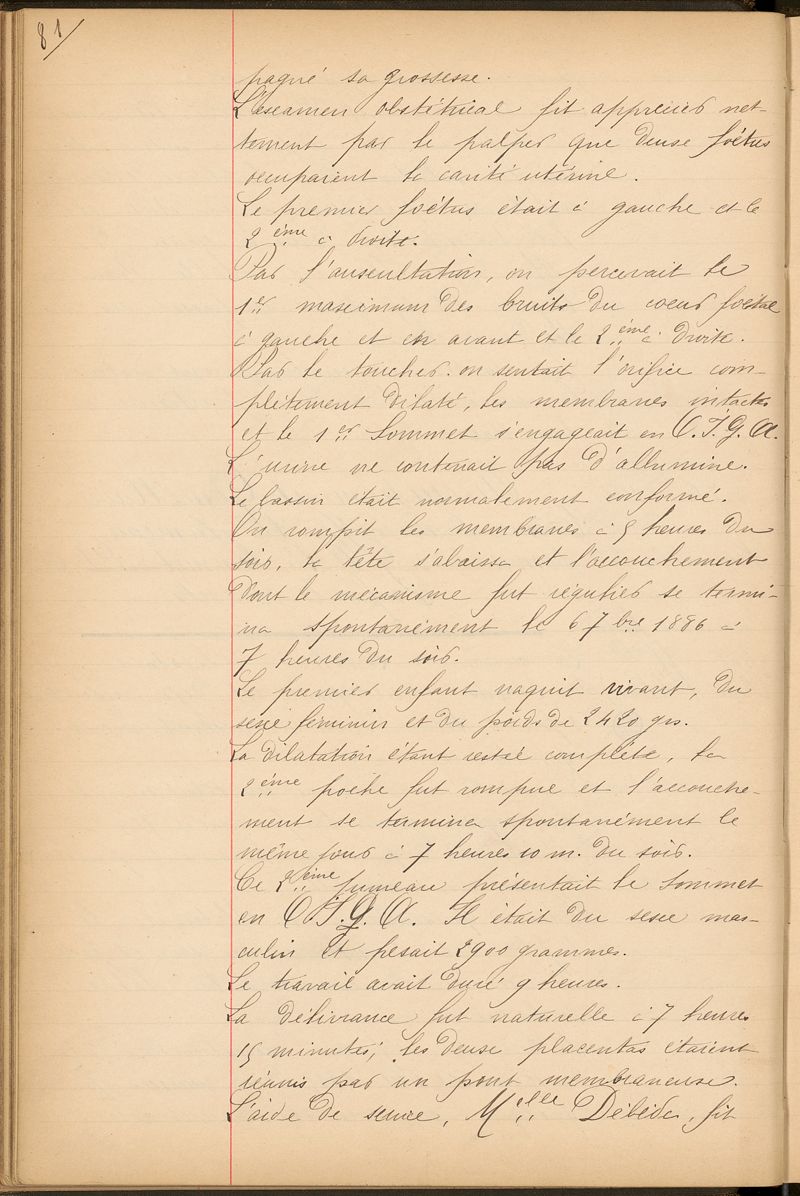 81
pagné sa grossesse.
L'examen obstétrical fit apprécier net-
tement par le palper que deux foetus
occupaient la cavité utérine.
Le premier foetus était à gauche et le
2ème à droite.
Par l'auscultation, on percevait le
1er maximum des bruits du coeur foetal
à gauche et en avant et le 2ème à droite.
Par le toucher on sentait l'orifice com-
plètement dilaté, les membranes intactes
et le 1er sommet s'engageait en O.I.G.A.
L'urine ne contenait pas d'albumine.
Le bassin était normalement conformé.
On rompit les membranes à 5 heures du
soir, la tête s'abaissa et l'accouchement
dont le mécanisme fut régulier se termi-
na spontanément le 6 7bre 1886 à
7 heures du soir.
Le premier enfant naquit vivant, du
sexe feminin et du poids de 2420 grs.
La dilatation étant restée complète, la
2ème poche fut rompue et l'accouche-
ment se termina spontanément le
même jour à 7 heures 10 m. du soir.
Ce 2ème jumeau présentait le sommet
en O.I.G.A. Il était du sexe mas-
culin et pesait 2900 grammes.
Le travail avait duré 9 heures.
La délivrance fut naturelle à 7 heures
15 minutes; les deux placentas étaient
réunis par un pont membraneux.
L'aide de semce, Melle Débéda, fit